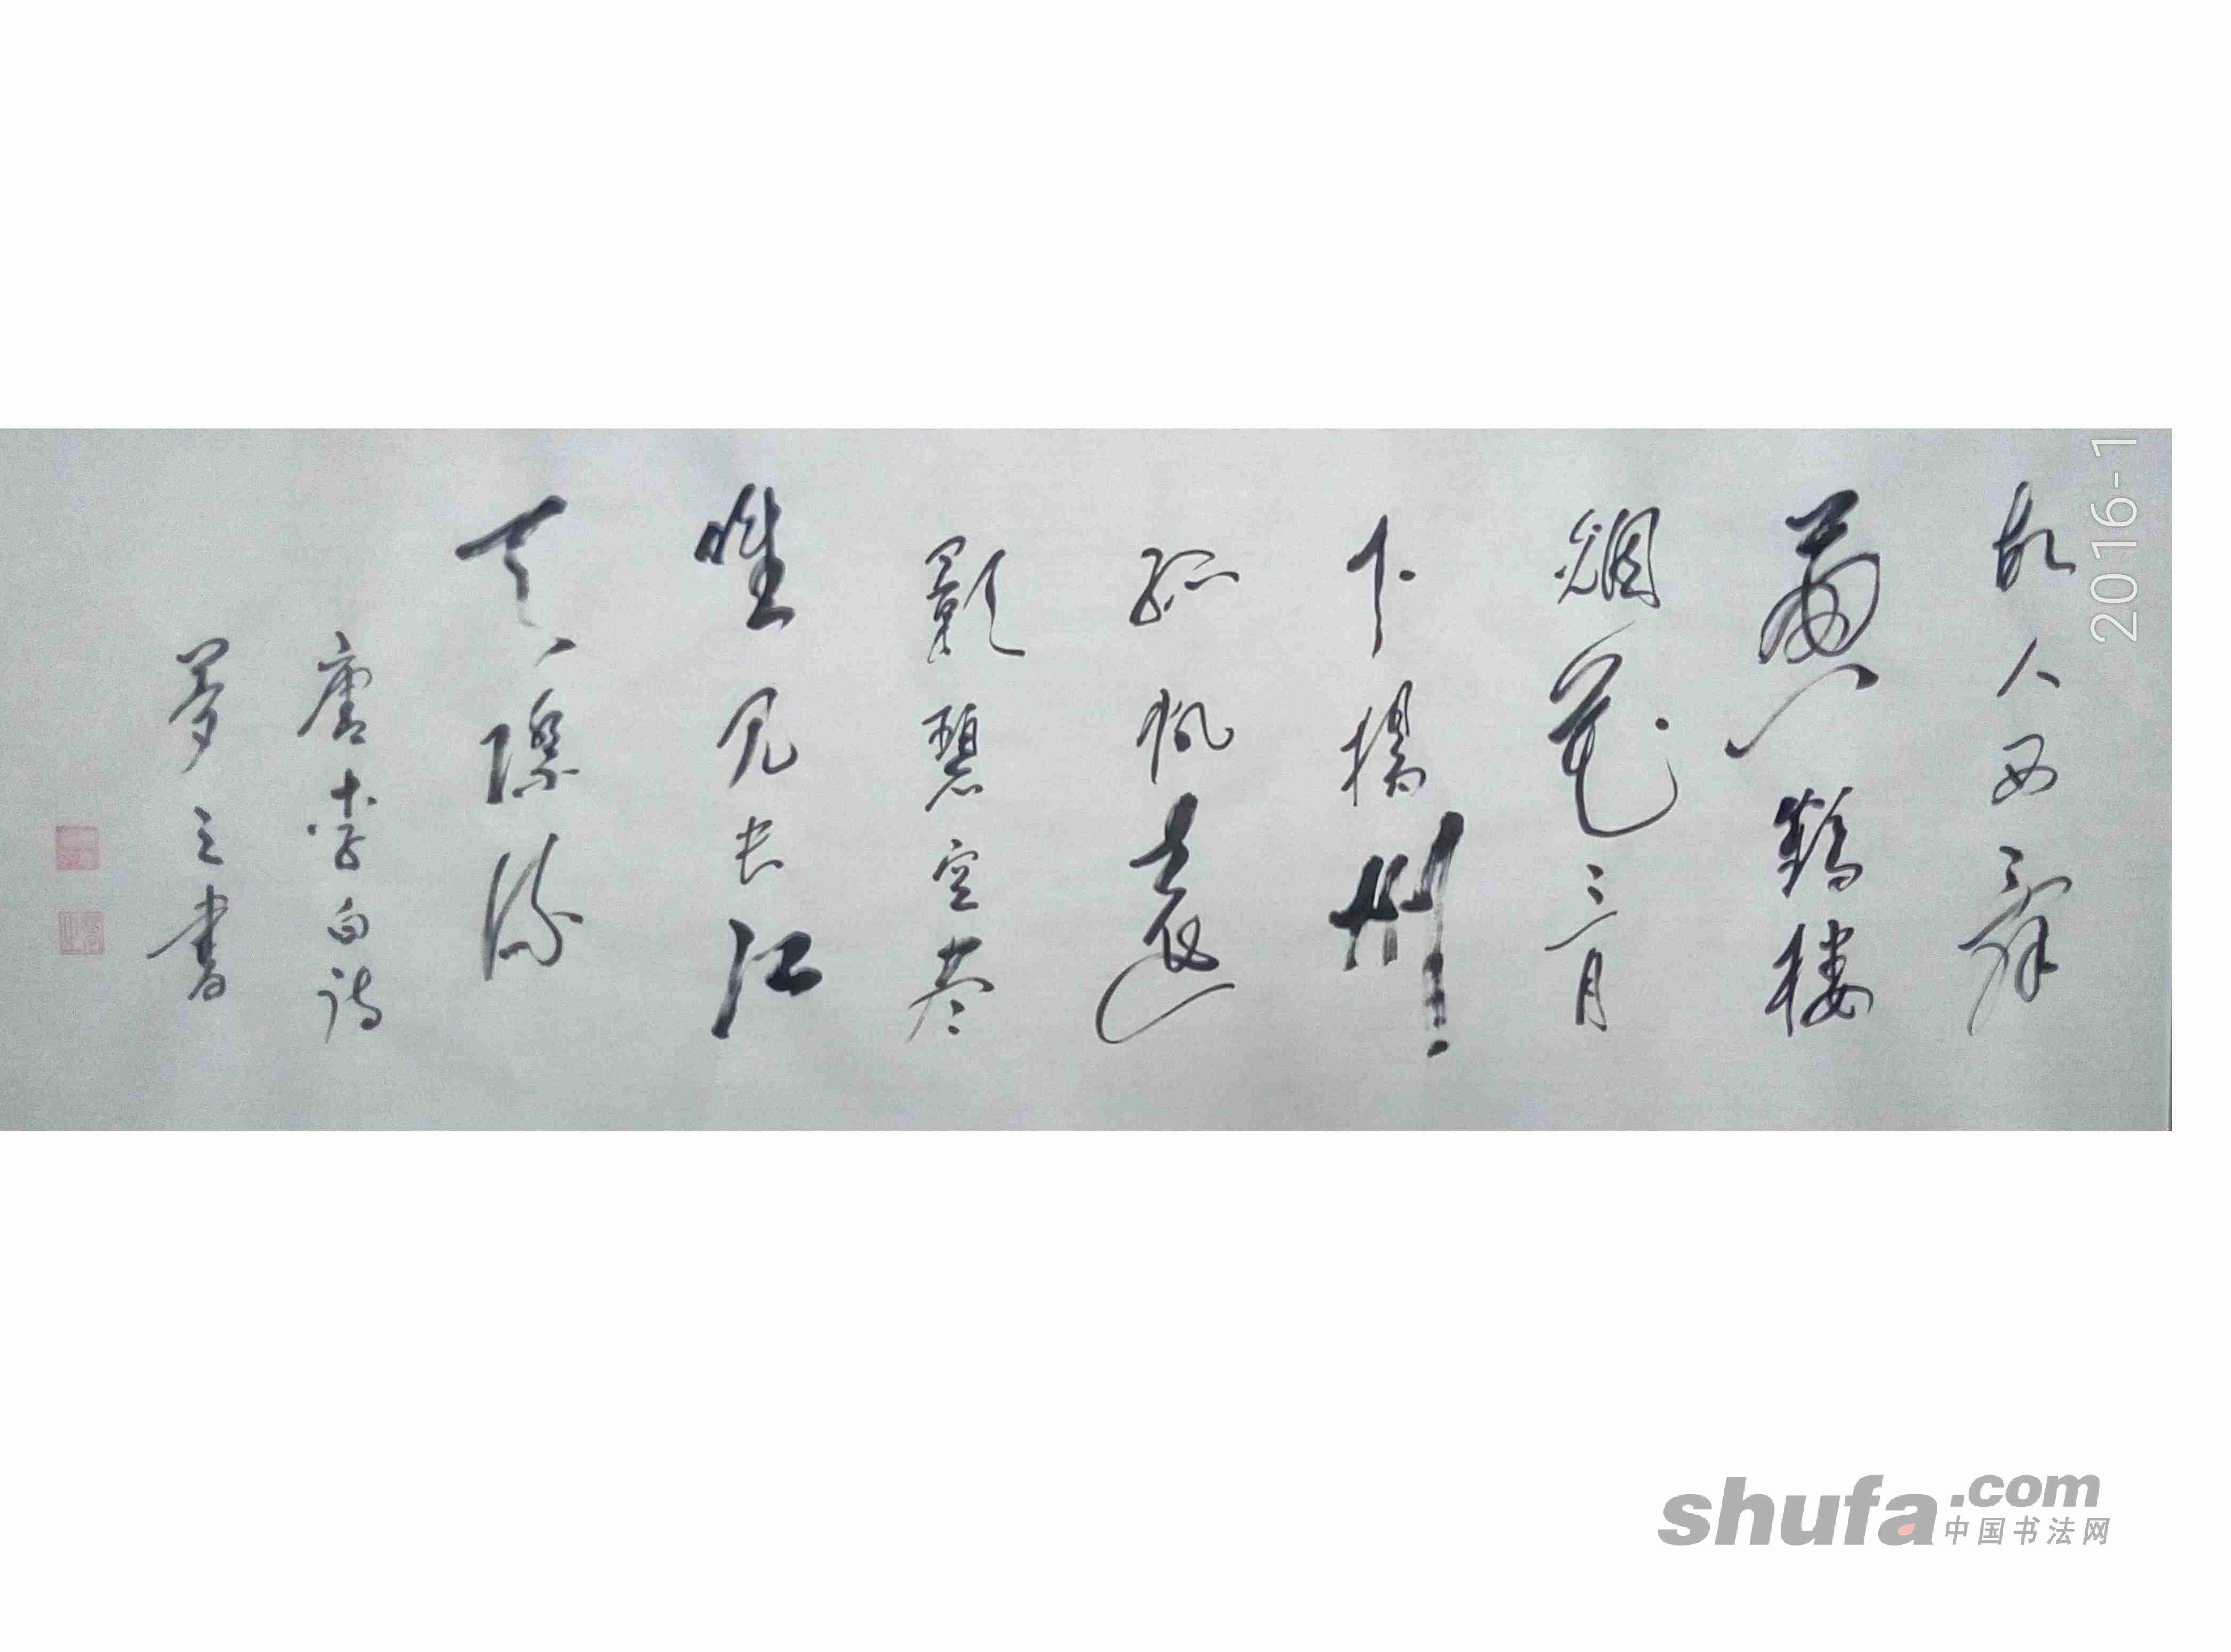 故人西辞
黄鹤楼
烟花三月
下揚州
孤帆遠
影碧空尽
唯见长江
天际流
唐李白诗
夢之書
2016-1
shufa.com
中国书法网